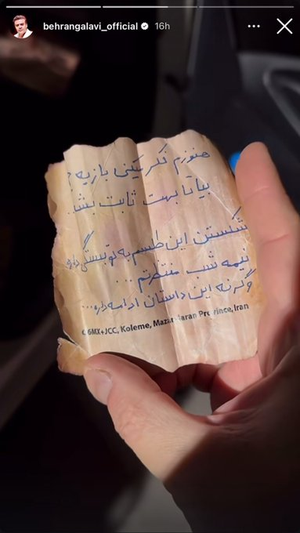 behrangalavi_official 16h
هنوزم فکر میکنی بازیه؟
بیا تا بهت ثابت بشه
شکستن این طلسم به تو بستگی داره
نیمه شب منتظرتم...
وگرنه این داستان ادامه داره...
GMX+JCC, Koleme, Mazandaran Province, Iran